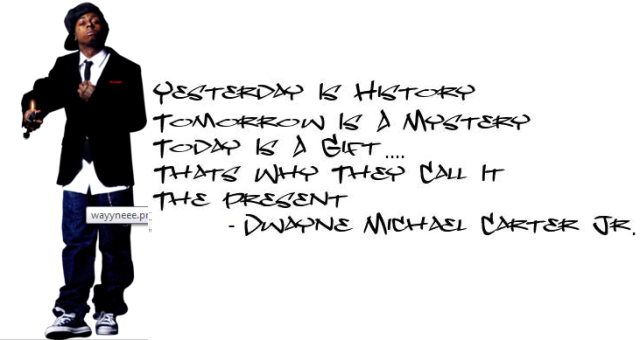 Yesterday Is History
Tomorrow Is A Mystery
Today Is A Gift....
Thats Why They Call It
The Present
- Dwayne Michael Carter Jr.
wayyneee.pr